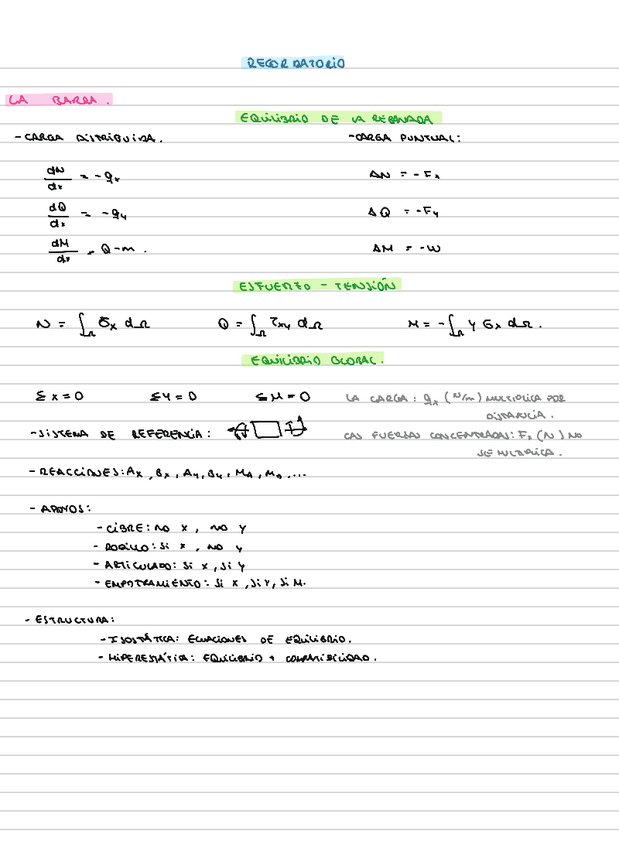 RECORDATORIO
LA BARRA.
EQUILIBRIO DE LA REBANADA
- CARGA DISTRIBUIDA. - CARGA PUNTUAL:
dN/dx = -qx ΔN = -Fx
dQ/dx = -qy ΔQ = -Fy
dM/dx = Q-m. ΔM = -W
ESFUERZO - TENSIÓN
N = ∫Ω σx dΩ Q = ∫Ω τxy dΩ M = -∫Ω y σx dΩ.
EQUILIBRIO GLOBAL.
Σx=0 ΣY=0 ΣM=0 LA CARGA: qx (N/m) MULTIPLICA POR
DISTANCIA.
- SISTEMA DE REFERENCIA: LAS FUERZAS CONCENTRADAS: Fx (N) NO
SE MULTIPLICA.
- REACCIONES: Ax, Bx, Ay, By, MA, MB, ...
- APOYOS:
- LIBRE: NO X, NO Y
- RODILLO: SI X, NO Y
- ARTICULADO: SI X, SI Y
- EMPOTRAMIENTO: SI X, SI Y, SI M.
- ESTRUCTURA:
- ISOSTÁTICA: ECUACIONES DE EQUILIBRIO.
- HIPERESTÁTICA: EQUILIBRIO + COMPATIBILIDAD.